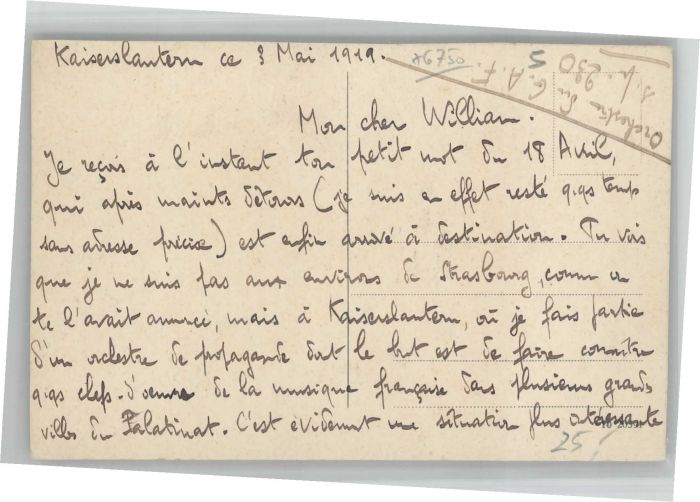 Kaiserslautern ce 3 Mai 1919.
*6750
5
Orchestre du G.A.F.
S.p. 230
Mon cher William.
Je reçois à l'instant ton petit mot du 18 Avril,
qui après maints détours (je suis en effet resté qqs temps
sans adresse précise) est enfin arrivé à destination. Tu vois
que je ne suis pas aux environs de Strasbourg, comm on
te l'avait annoncé, mais à Kaiserslautern, où je fais partie
d'un orchestre de propagande dont le but est de faire connaître
qqs chefs-d'oeuvre de la musique française dans plusieurs grands
villes du Palatinat. C'est évidemment une situation plus intéressante
25